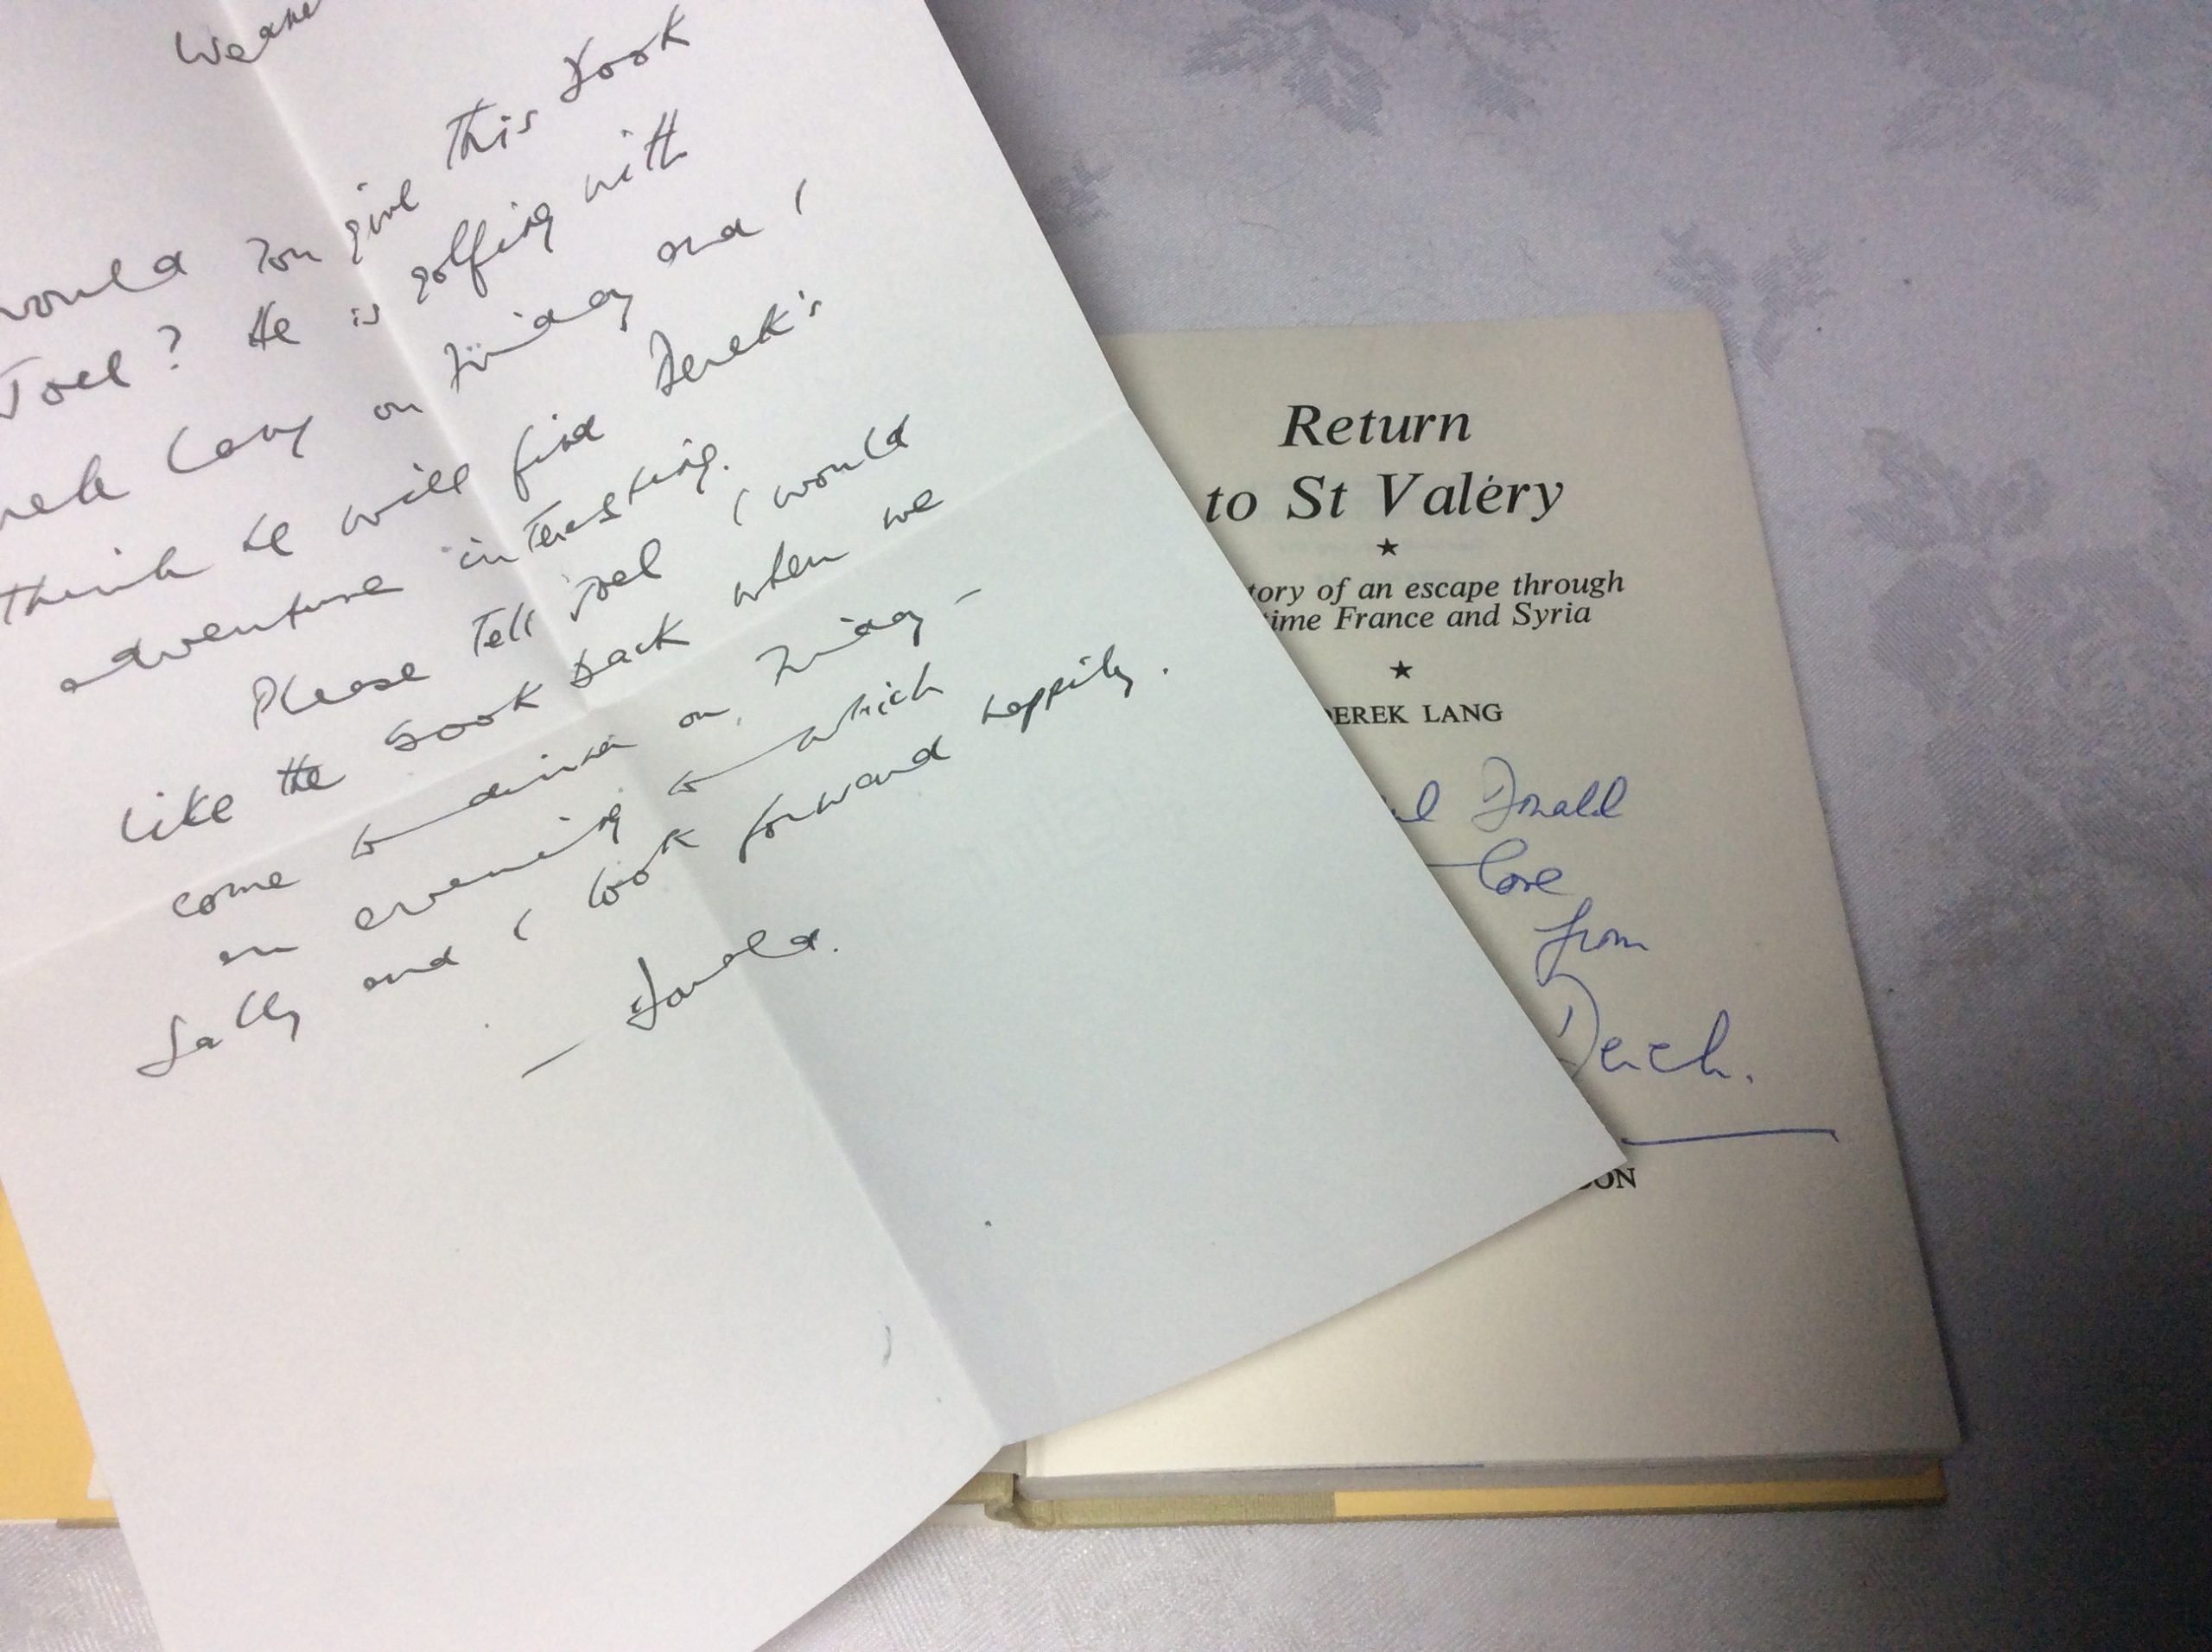 Would you give this book
Joel? He is golfing with
Lang on Friday and I
think he will find Derek's
adventure interesting.
Please Tell Joel I would
like the book back when we
come to dinner on Friday -
an evening to which
Sally and I look forward happily.
— Donald.
Return
to St Valéry
★
tory of an escape through
time France and Syria
★
DEREK LANG
Donald
love
from
Derek.
ON